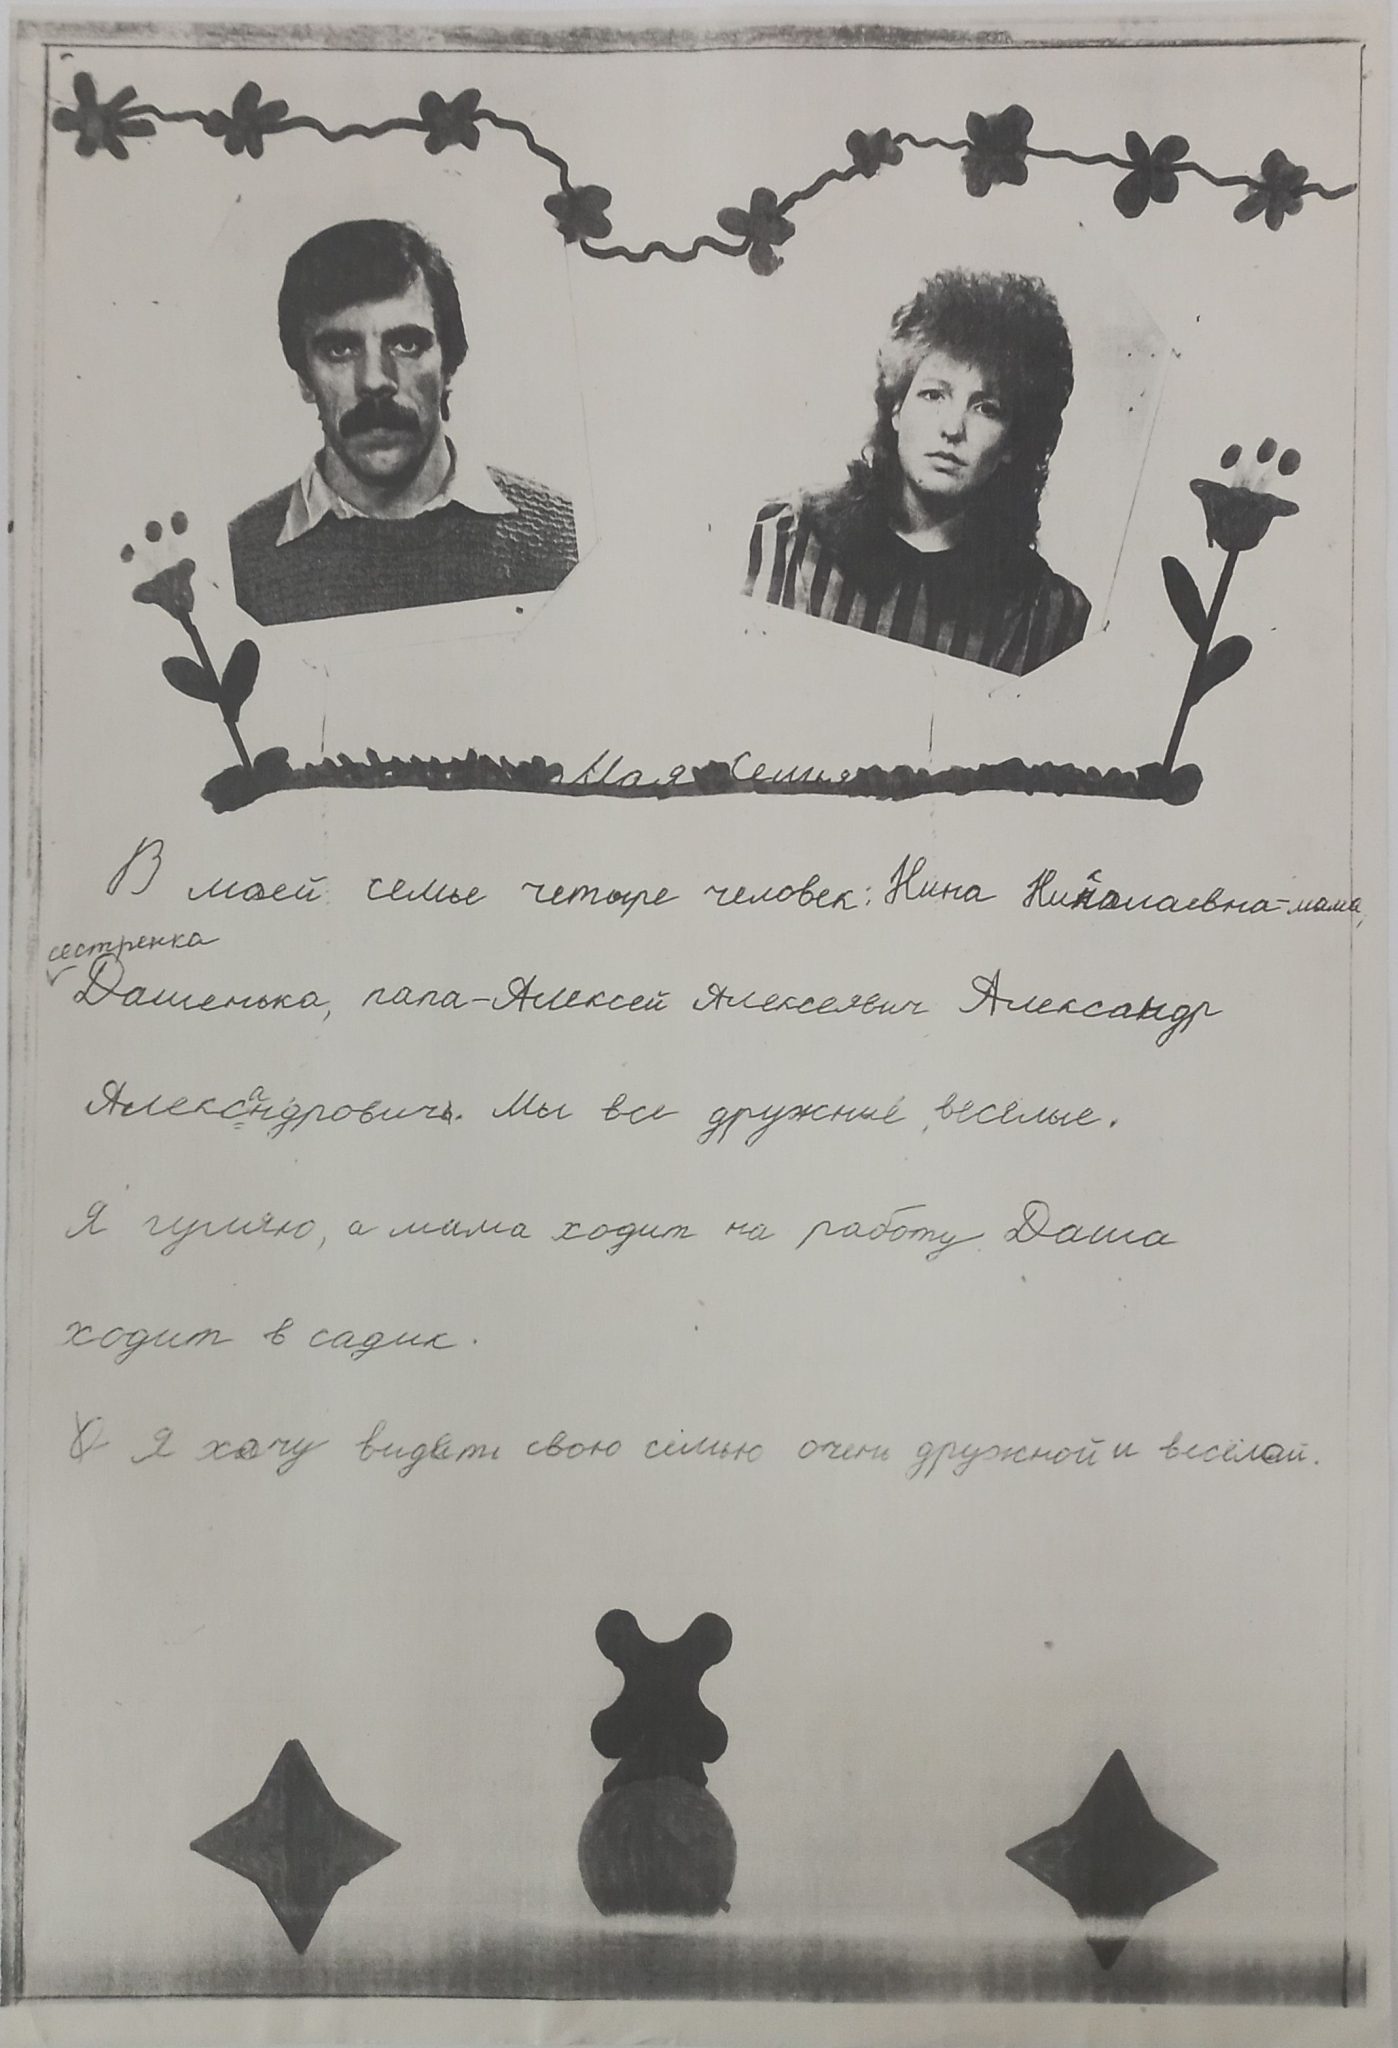 Моя Семья
В моей семье четыре человек: Нина Николаевна - мама,
сестренка
Дашенька, папа - Алексей Алексеявич Александр
Александрович. Мы все дружные, весёлые.
Я гуляю, а мама ходит на работу Даша
ходит в садик.
Я хочу видеть свою семью очень дружной и весёлой.